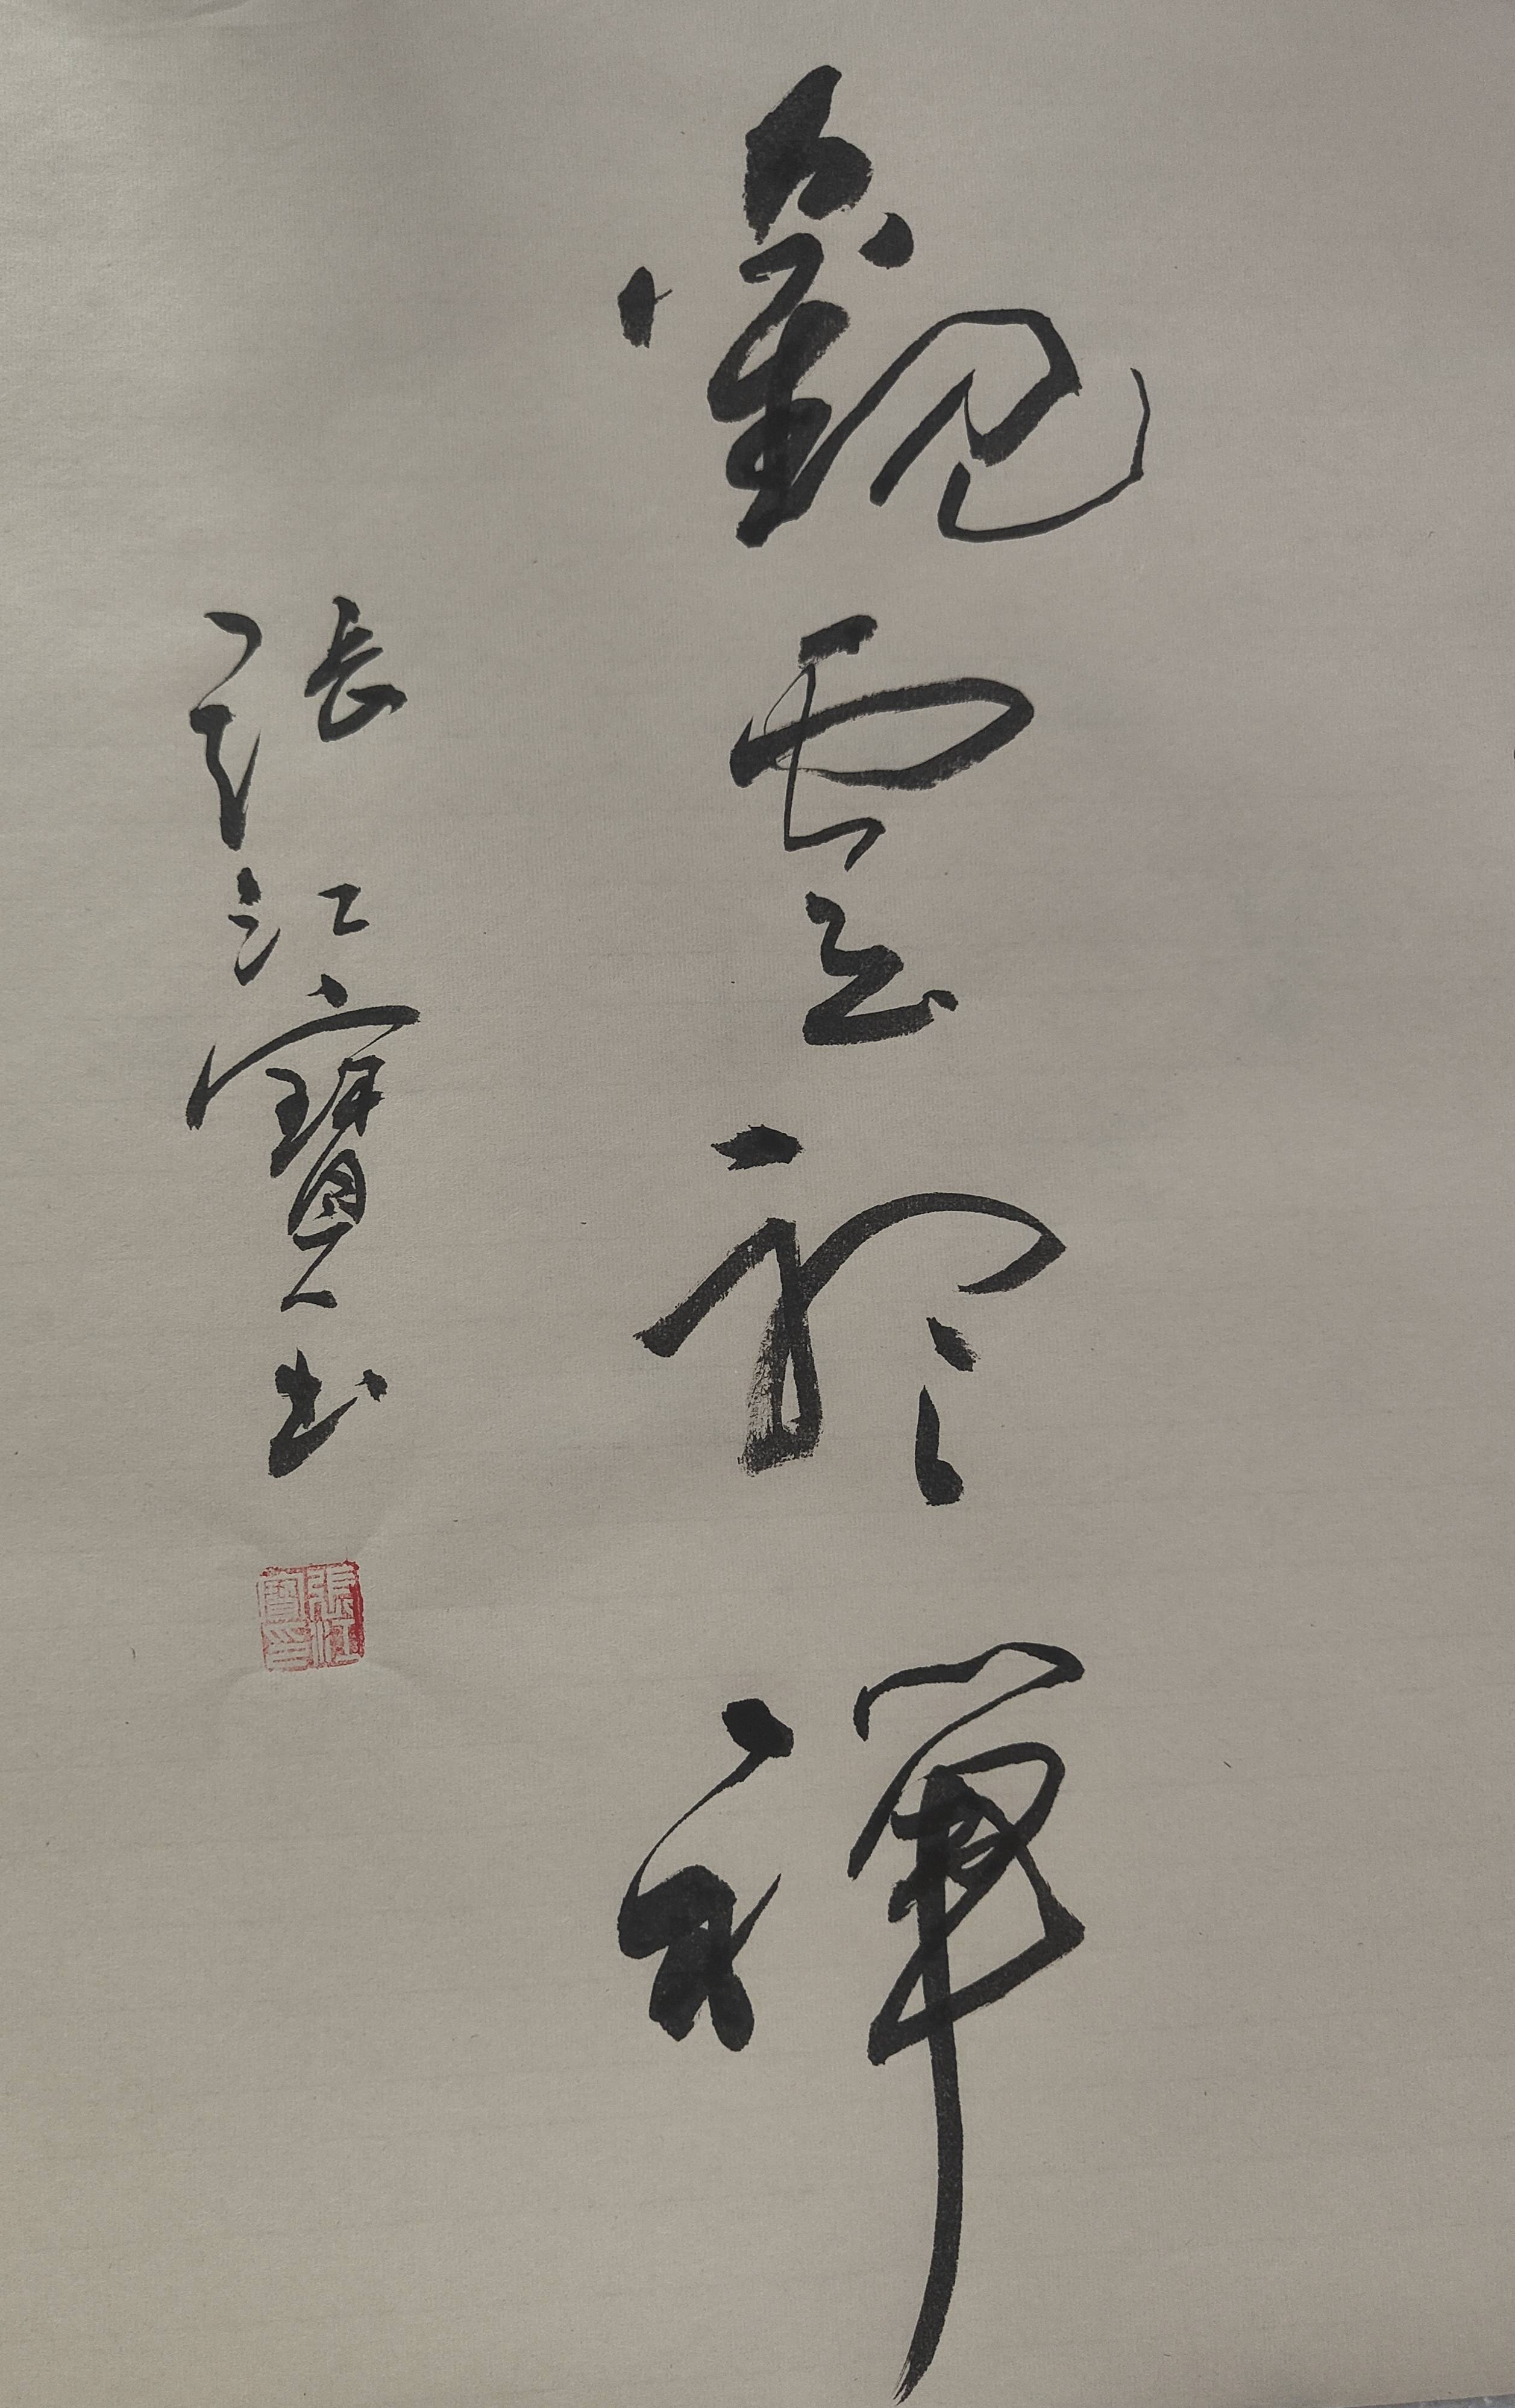 觀雲聽禪
張江寶書
張江寶印